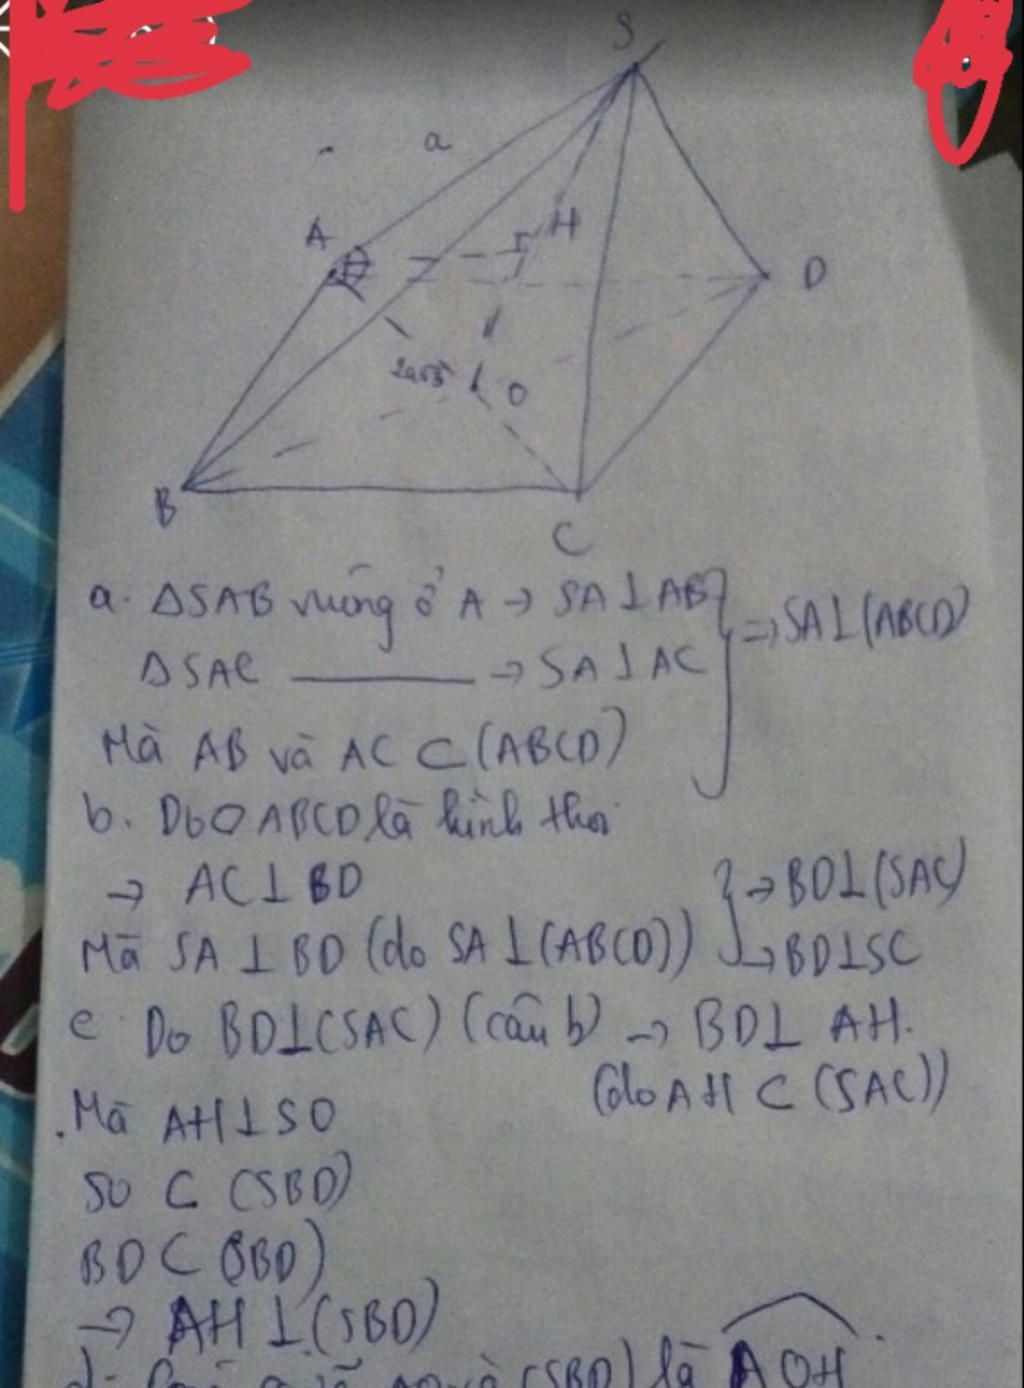 S
a
A
H
D
2a√3
O
B
C
a. ΔSAB vuông ở A → SA⊥AB
⇒ SA⊥(ABCD)
ΔSAC ——— → SA⊥AC
Mà AB và AC ⊂ (ABCD)
b. Do ◇ABCD là hình thoi
→ AC⊥BD
→ BD⊥(SAC)
Mà SA⊥BD (do SA⊥(ABCD))
→ BD⊥SC
c. Do BD⊥(SAC) (câu b) → BD⊥AH.
(do AH ⊂ (SAC))
Mà AH⊥SO
SO ⊂ (SBD)
BD ⊂ (SBD)
→ AH⊥(SBD)
d. (SBD) là AOH